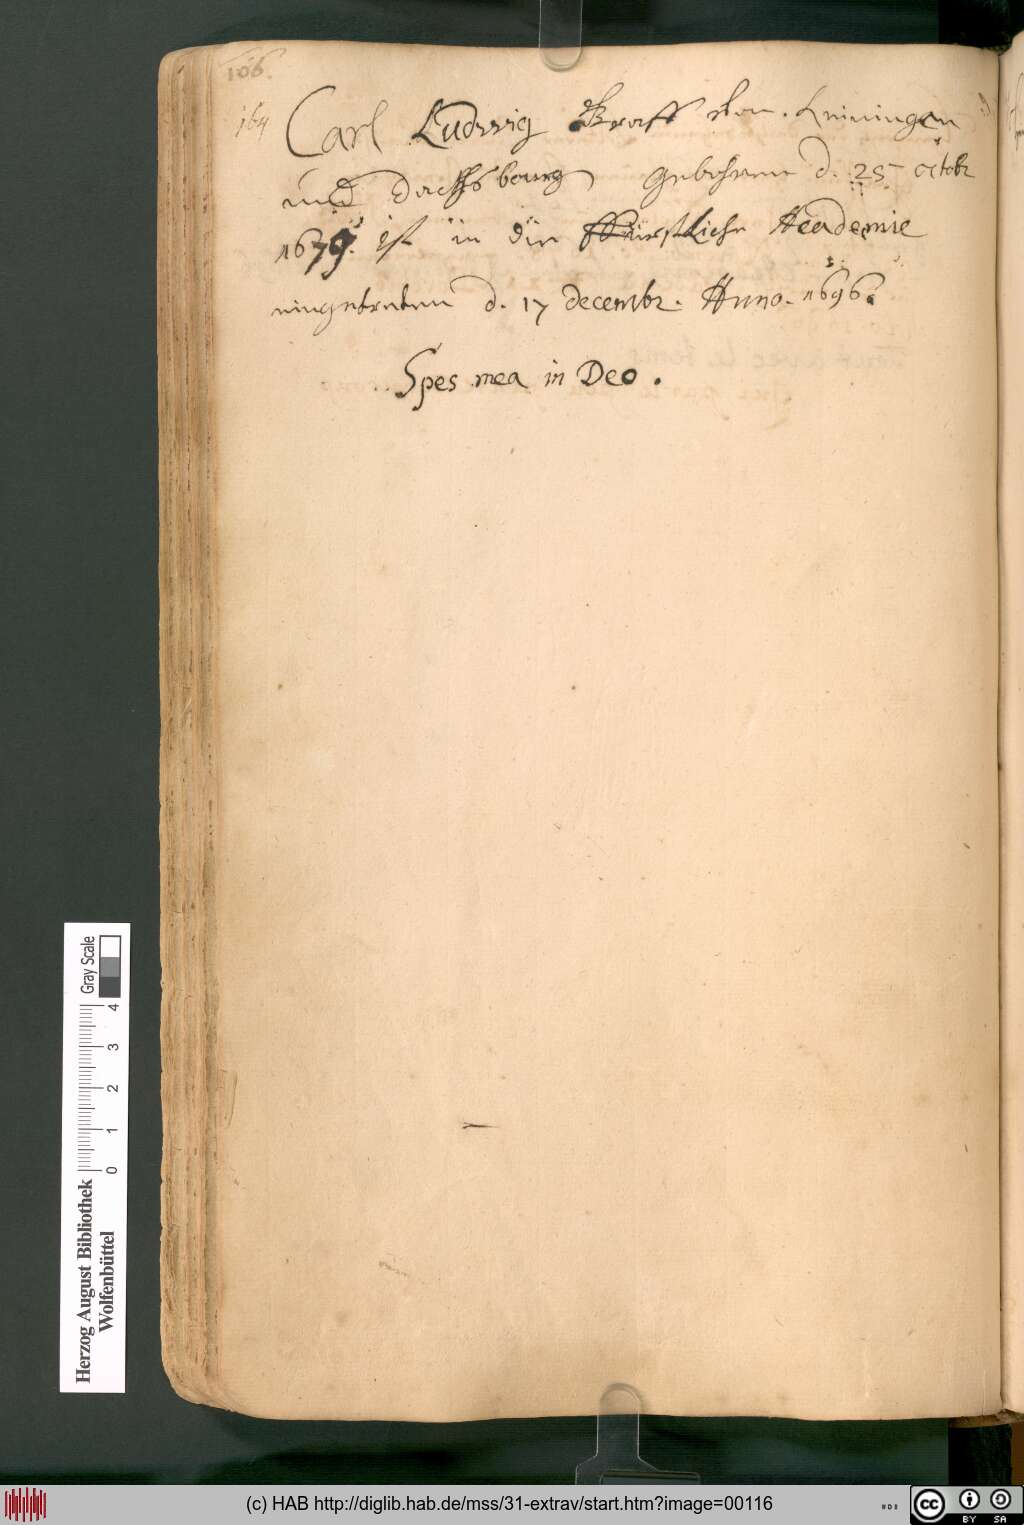 106.
164
Carl Ludwig Graff von Leiningen
und dachsbourg gebohren d. 25 octobr
1679. ist in die ffürstliche Academie
eingetreten d. 17 decembr. Anno. 1696.
Spes mea in Deo.
Herzog August Bibliothek
Wolfenbüttel
0 1 2 3 4
Gray Scale
(c) HAB http://diglib.hab.de/mss/31-extrav/start.htm?image=00116
cc BY SA